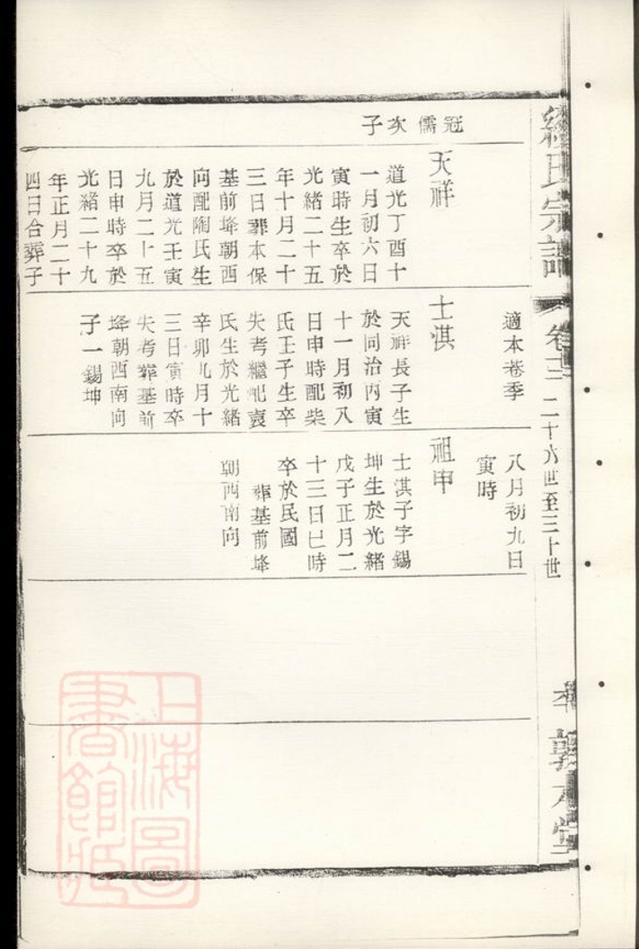 氏宗譜
卷十三
二十六世至三十世
敦
堂
冠儒次子
天祥
道光丁酉十
一月初六日
寅時生卒於
光緒二十五
年十月二十
三日葬本保
基前埄朝西
向配陶氏生
於道光壬寅
九月二十五
日申時卒於
光緒二十九
年正月二十
四日合葬子
適本巷季
士淇
天祥長子生
於同治丙寅
十一月初八
日申時配柴
氏壬子生卒
失考繼配袁
氏生於光緒
辛卯九月十
三日寅時卒
失考葬基前
埄朝西南向
子一錫坤
八月初九日
寅時
祖申
士淇子字錫
坤生於光緒
戊子正月二
十三日巳時
卒於民國
葬基前埄
朝西南向
上海圖
書館藏